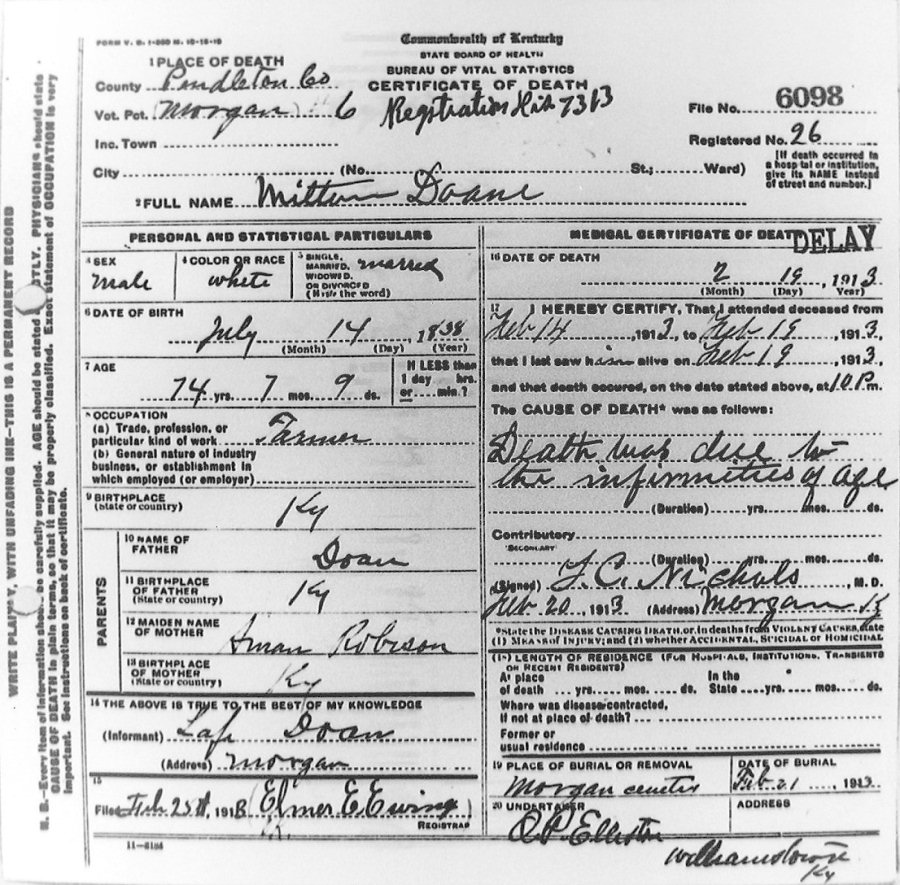 FORM V. S. 1-
Commonwealth of Kentucky
STATE BOARD OF HEALTH
BUREAU OF VITAL STATISTICS
CERTIFICATE OF DEATH
1 PLACE OF DEATH
County Pendleton Co
Vot. Pct. Morgan 6
Registration Dis 7313
File No. 6098
Inc. Town
Registered No. 26
City (No. St.; Ward)
[If death occurred in a hospital or institution, give its NAME instead of street and number.]
2 FULL NAME Milton Doane
PERSONAL AND STATISTICAL PARTICULARS
3 SEX male
4 COLOR OR RACE white
5 SINGLE, MARRIED, WIDOWED, OR DIVORCED (Write the word) married
6 DATE OF BIRTH
July 14, 1838
(Month) (Day) (Year)
7 AGE
74 yrs. 7 mos. 9 ds.
If LESS than 1 day hrs. or min.?
8 OCCUPATION
(a) Trade, profession, or particular kind of work Farmer
(b) General nature of industry business, or establishment in which employed (or employer)
9 BIRTHPLACE
(State or country) Ky
PARENTS
10 NAME OF FATHER Doan
11 BIRTHPLACE OF FATHER (State or country) Ky
12 MAIDEN NAME OF MOTHER Aman Robison
13 BIRTHPLACE OF MOTHER (State or country) Ky
14 THE ABOVE IS TRUE TO THE BEST OF MY KNOWLEDGE
(Informant) Lafe Doan
(Address) Morgan
15
Filed Feb 25th, 1913 Elmer E Ewing
REGISTRAR
11-
MEDICAL CERTIFICATE OF DEATH
DELAY
16 DATE OF DEATH
2 19, 1913
(Month) (Day) Year)
17 I HEREBY CERTIFY, That I attended deceased from
Feb 14, 1913, to Feb 19, 1913,
that I last saw him alive on Feb 19, 1913
and that death occured, on the date stated above, at 10 P.m.
The CAUSE OF DEATH* was as follows:
Death was due to
the infirmities of age
(Duration) yrs. mos. ds.
Contributory
(SECONDARY)
(Duration) yrs. mos. ds.
(Signed) J. C. Nichols M. D.
Feb 20, 1913 (Address) Morgan Ky
*State the DISEASE CAUSING DEATH, or, in deaths from VIOLENT CAUSES, state
(1) MEANS OF INJURY; and (2) whether ACCIDENTAL, SUICIDAL or HOMICIDAL
(18) LENGTH OF RESIDENCE (FOR HOSPITALS, INSTITUTIONS, TRANSIENTS OR RECENT RESIDENTS)
At place of death yrs. mos. ds.
In the State yrs. mos. ds.
Where was disease contracted,
If not at place of death?
Former or
usual residence
19 PLACE OF BURIAL OR REMOVAL
Morgan
DATE OF BURIAL
Feb 21, 1913
20 UNDERTAKER
O.P. Elliston
ADDRESS
Williamstown
Ky
WRITE PLAINLY, WITH UNFADING INK—THIS IS A PERMANENT RECORD
N. B.—Every item of information should be carefully supplied. AGE should be stated EXACTLY. PHYSICIANS should state
CAUSE OF DEATH in plain terms, so that it may be properly classified. Exact statement of OCCUPATION is very
important. See instructions on back of certificate.